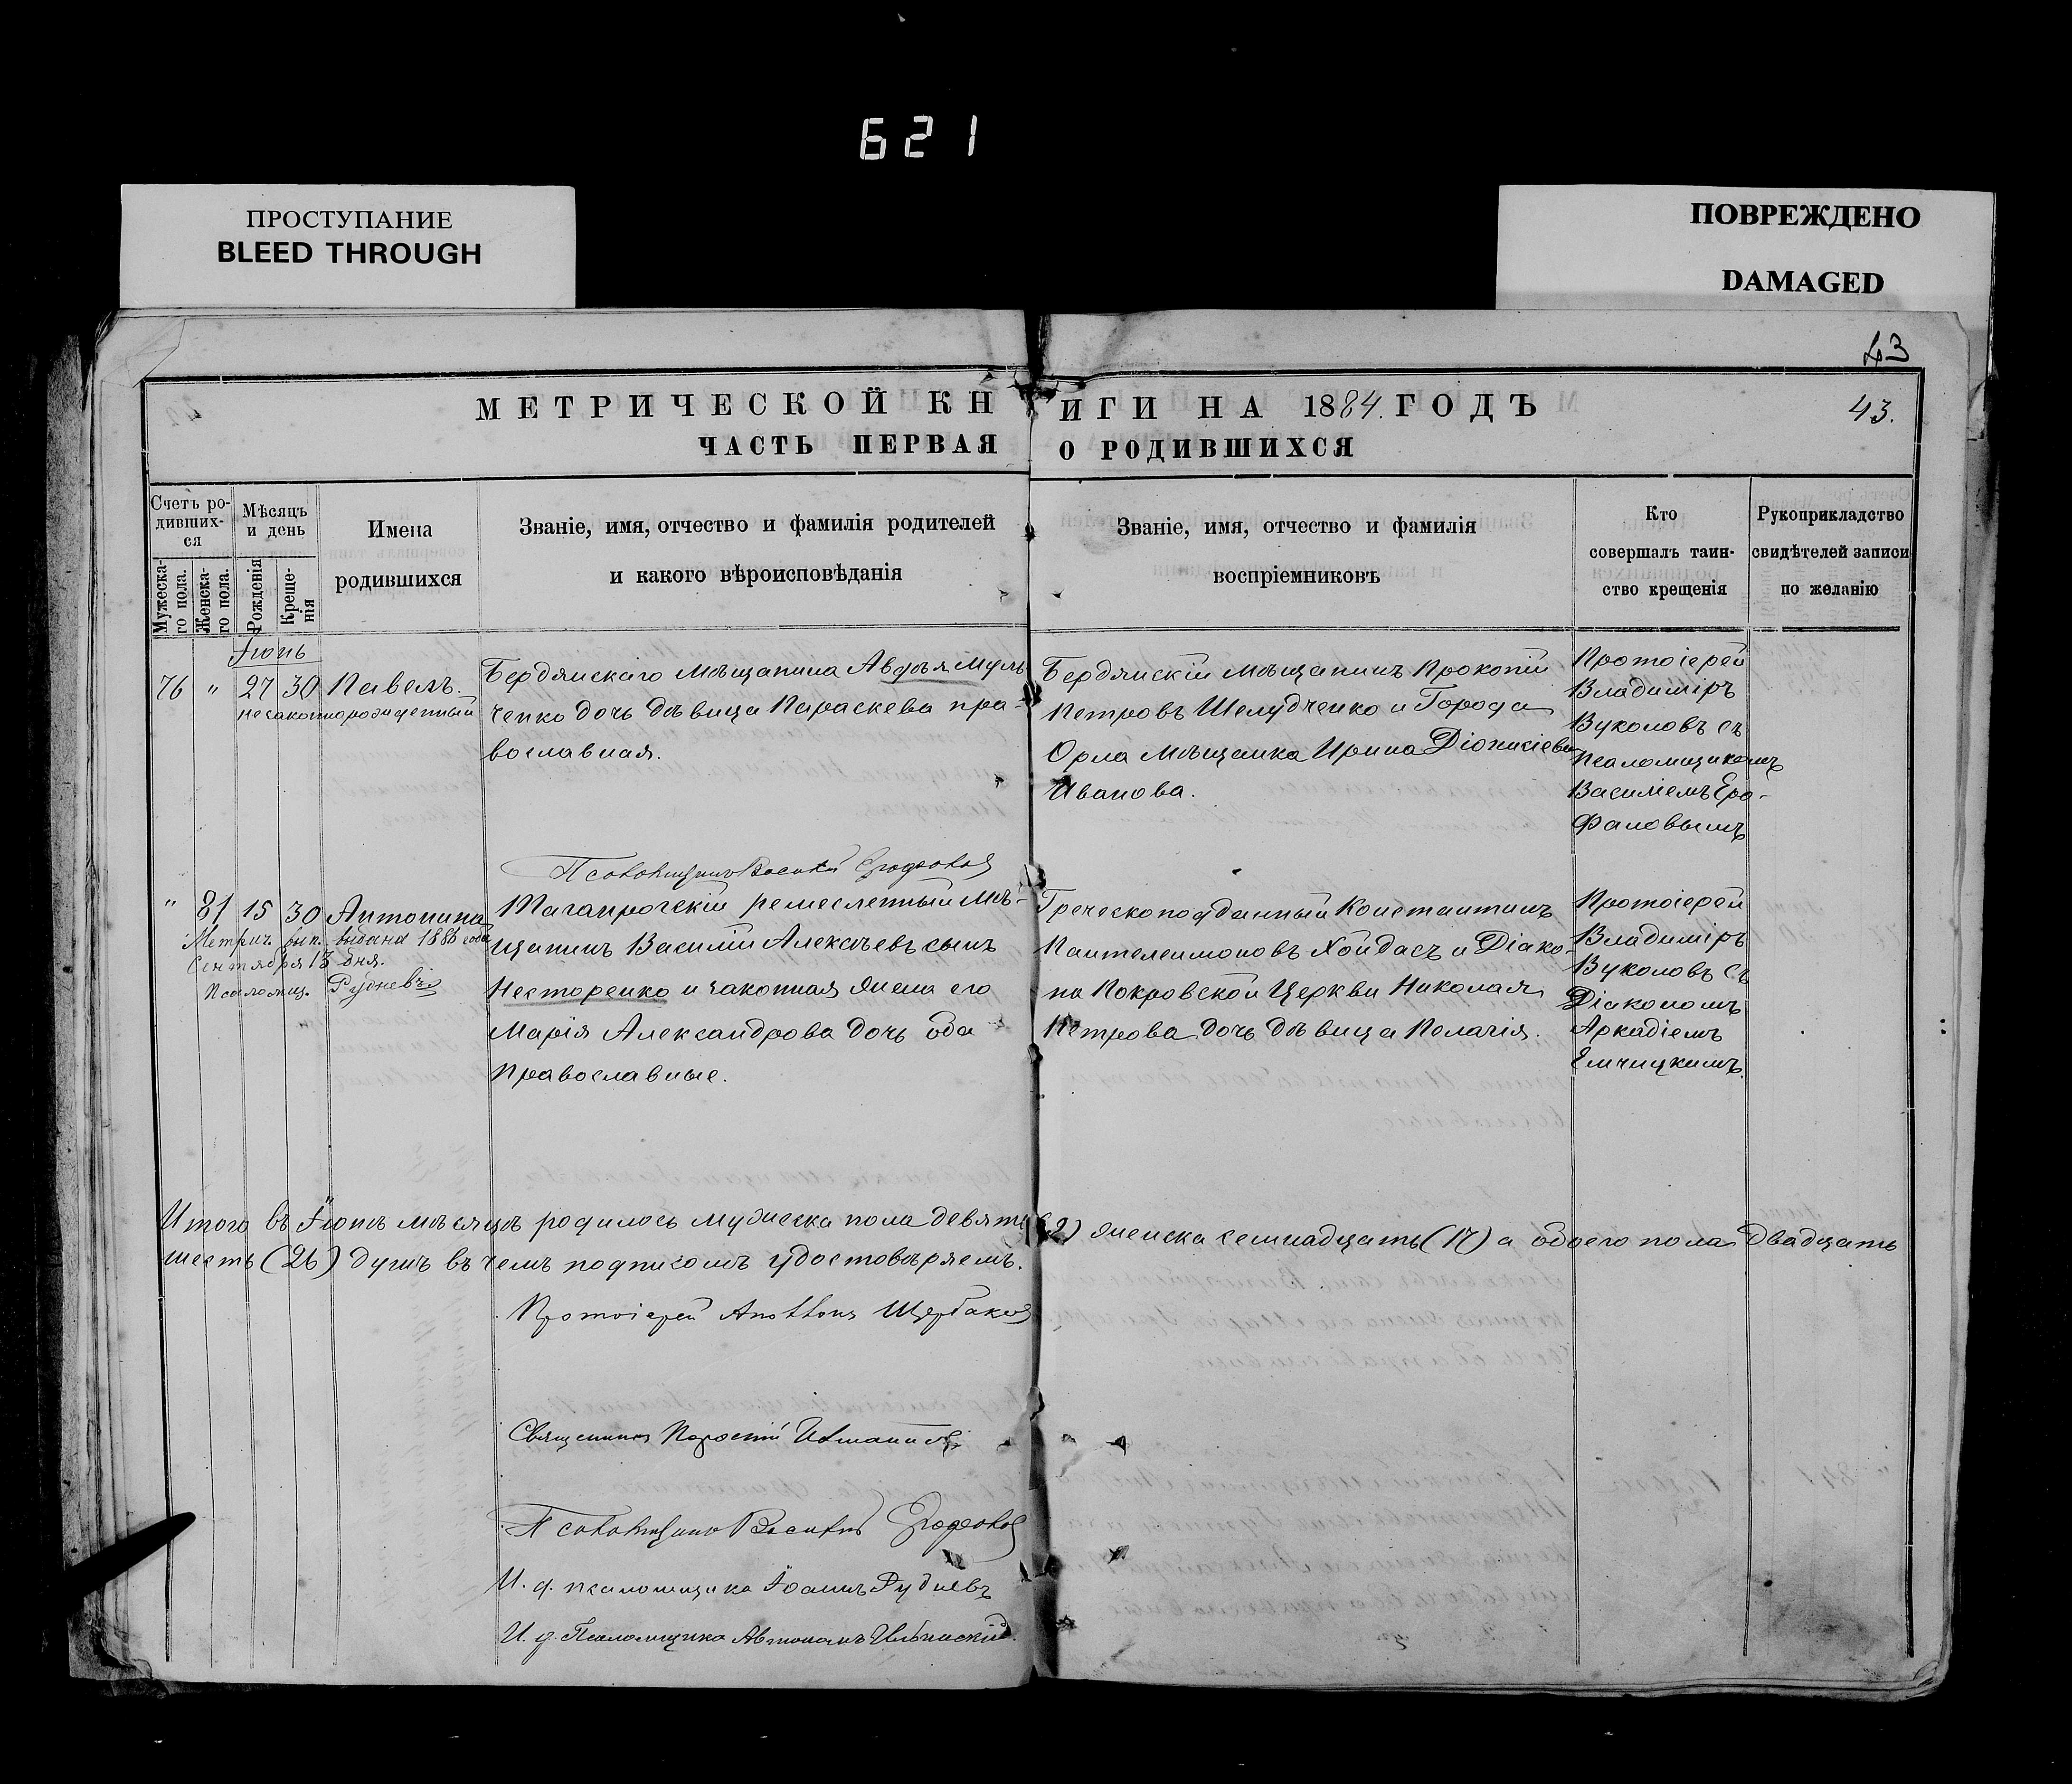 621
ПРОСТУПАНИЕ
BLEED THROUGH
ПОВРЕЖДЕНО
DAMAGED
43
МЕТРИЧЕСКОЙ КНИГИ НА 1884. ГОДЪ
43.
ЧАСТЬ ПЕРВАЯ О РОДИВШИХСЯ
Счетъ ро-
дивших-
ся
Мужеска-
го пола.
Женска-
го пола.
Мѣсяцъ
и день
Рожденія
Креще-
нія
Имена
родившихся
Званіе, имя, отчество и фамилія родителей
и какого вѣроисповѣданія
Званіе, имя, отчество и фамилія
воспріемниковъ
Кто
совершалъ таин-
ство крещенія
Рукоприкладство
свидѣтелей записи
по желанію
Іюнь
76 " 27 30 Павелъ.
незаконнорожденный
Бердянскаго Мѣщанина Авдѣя Муль
ченко дочь дѣвица Параскева пра-
вославная.
Бердянскій Мѣщанинъ Прокопій
Петровъ Шелудченко и Города
Орла Мѣщанка Ирина Діонисіева
Иванова.
Протоіерей
Владиміръ
Вуколовъ съ
Псаломщикомъ
Василіемъ Еро-
фаловымъ
Псаломщикъ Василій
" 81 15 30 Антонина
Метрич. вып. выдана 1886 года
Сентября 13 дня.
Псаломщ. Рудневъ
Таганрогскій ремесленный Мѣ-
щанинъ Василій Алексѣевъ сынъ
Несторенко и законная жена его
Марія Александрова дочь оба
Православные.
Греческоподданный Константинъ
Пантелеимоновъ Хойдасъ и Діако-
на Покровской Церкви Николая
Петрова дочь дѣвица Пелагія.
Протоіерей
Владиміръ
Вуколовъ съ
Діакономъ
Аркадіемъ
Емчицкимъ.
Итого въ Іюнѣ мѣсяцѣ родилось мужеска пола девять (9) женска семнадцать (17) а обоего пола двадцать
шесть (26) душъ въ чемъ подписомъ удостовѣряемъ.
Протоіерей Щербаковъ
Священникъ
Псаломщикъ Василій
И. д. псаломщика Іоаннъ Рудневъ
И. д. Псаломщика Автономъ